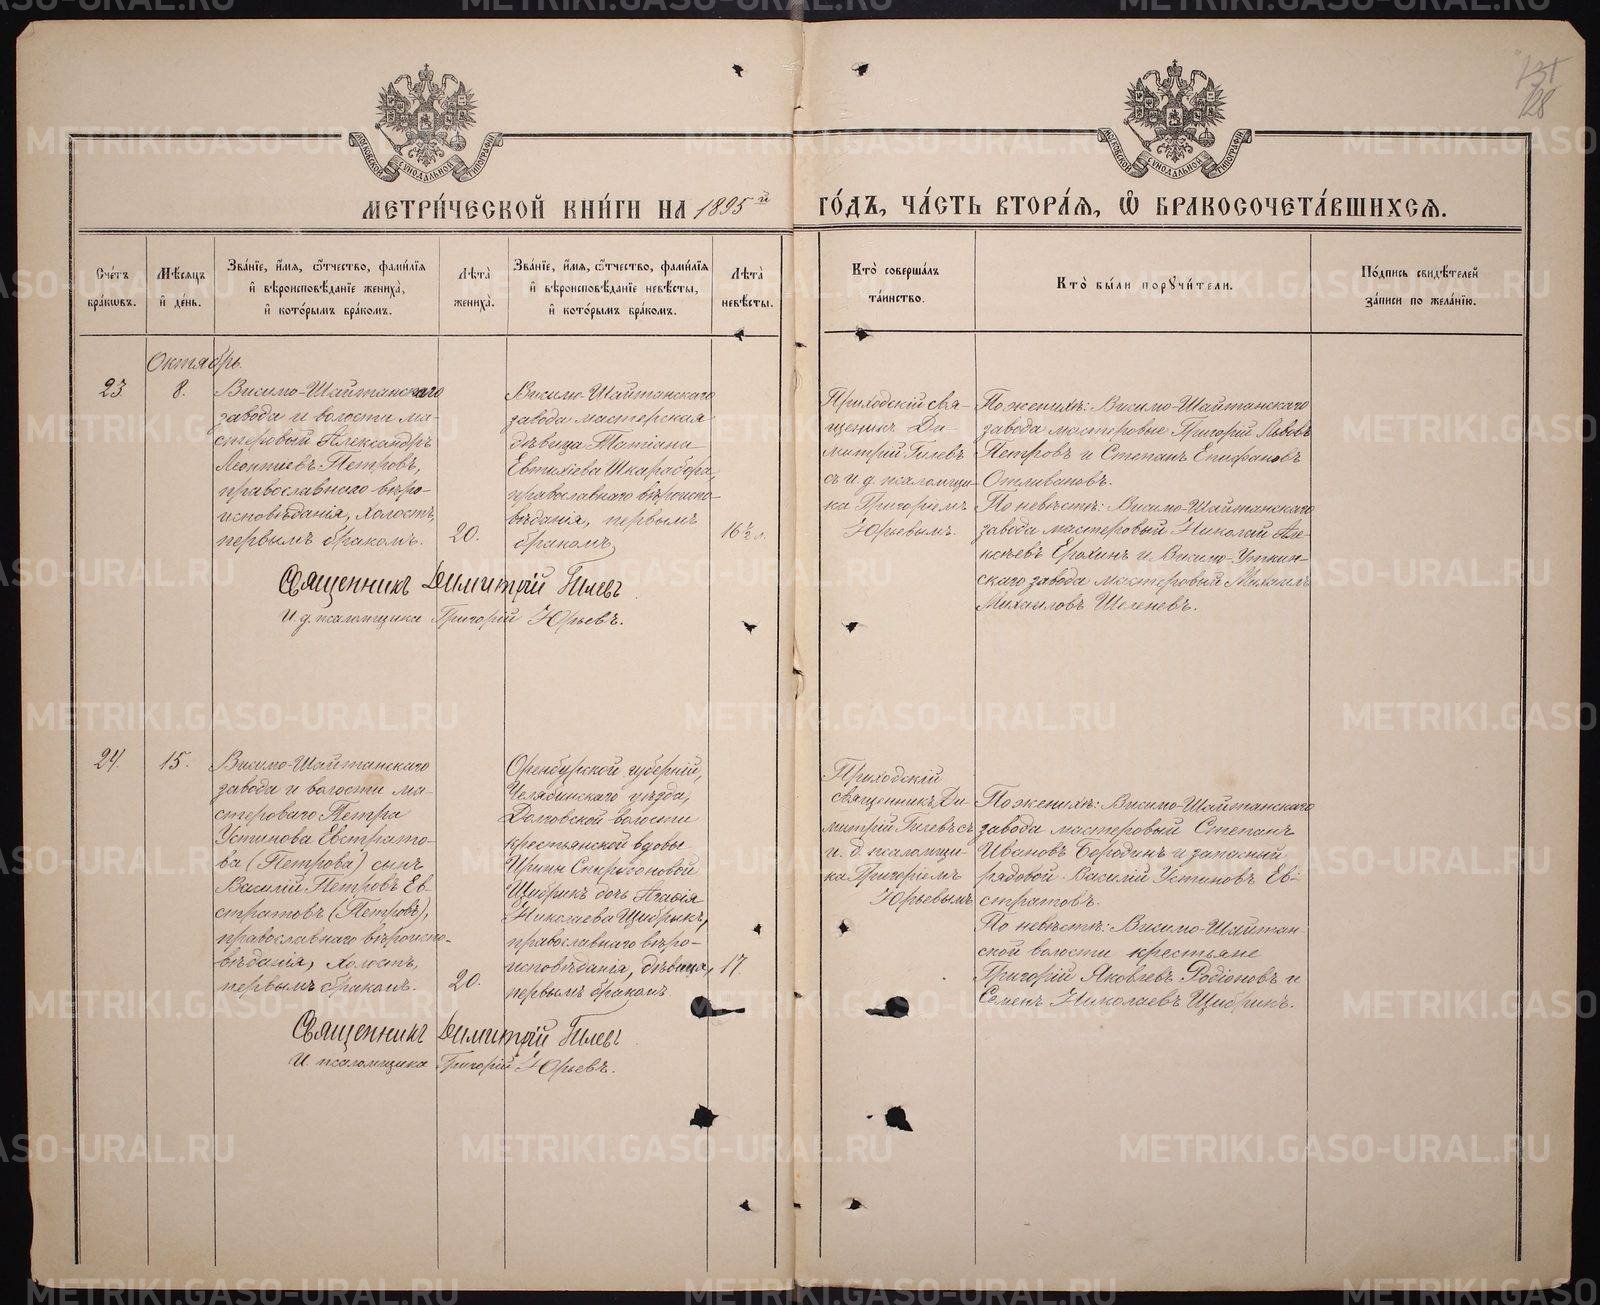 131
128
МОСКОВСКОЙ СѴНОДАЛЬНОЙ ТИПОГРАФІИ
МОСКОВСКОЙ СѴНОДАЛЬНОЙ ТИПОГРАФІИ
МЕТРИ́ЧЕСКОЙ КНИ́ГИ НА 1895й ГО́ДЪ, ЧА́СТЬ ВТОРА́Я, Ѡ БРАКОСОЧЕТА́ВШИХСЯ.
Сче́тъ
бра́кѡвъ.
Мѣ́сяцъ
и҆ де́нь.
Зва́нїе, и҆́мя, ѻ҆́тчество, фами́лїя
и҆ вѣроисповѣ́данїе жениха̀,
и҆ кото́рымъ бра́комъ.
Лѣ́та̀
жениха̀.
Зва́нїе, и҆́мя, ѻ҆́тчество, фами́лїя
и҆ вѣроисповѣ́данїе невѣ́сты,
и҆ кото́рымъ бра́комъ.
Лѣ́та̀
невѣ́сты.
Кто̀ соверша́лъ
та́инство.
Кто̀ бы́ли порꙋчи́тели.
По́дпись свидѣ́телей
за́писи по жела́нїю.
Октябрь.
23
8.
Висимо-Шайтанскаго
завода и волости ма-
стеровый Александръ
Леонтіевъ Петровъ,
православнаго вѣро-
исповѣданія, холостъ,
первымъ бракомъ.
20.
Висимо-Шайтанскаго
завода мастерская
дѣвица Татіана
Евтихіева Шкарабора,
православнаго вѣроиспо-
вѣданія, первымъ
бракомъ,
16½ л.
Приходскій свя-
щеникъ Ди-
митрій Гилевъ
съ и. д. псаломщи-
ка Григоріемъ
Юрьевымъ.
По женихѣ: Висимо-Шайтанскаго
завода мастеровые Григорій Львовъ
Петровъ и Степанъ Епифановъ
Отливановъ.
По невѣстѣ: Висимо-Шайтанскаго
завода мастеровый Николай Але-
ксѣевъ Ерохинъ и Висимо-Уткин-
скаго завода мастеровый Михаилъ
Михаиловъ Шеленевъ.
Священникъ Димитрій Гилевъ
И. д. псаломщика Григорій Юрьевъ.
24.
15.
Висимо-Шайтанскаго
завода и волости ма-
стероваго Петра
Устинова Евстрато-
ва (Петрова) сынъ
Василій Петровъ Ев-
стратовъ (Петровъ),
православнаго вѣроиспо-
вѣданія, холостъ,
первымъ бракомъ.
20.
Оренбургской губерніи,
Челябинскаго уѣзда,
Долговской волости
крестьянской вдовы
Ирины Спиридоновой
Щибрикъ дочь Агафія
Николаева Щибрыкъ,
православнаго вѣро-
исповѣданія, дѣвица,
первымъ бракомъ
17.
Приходскій
священникъ Ди-
митрій Гилевъ съ
и. д. псаломщи-
ка Григоріемъ
Юрьевымъ
По женихѣ: Висимо-Шайтанскаго
завода мастеровый Степанъ
Ивановъ Бородинъ и запасный
рядовой Василій Устиновъ Ев-
стратовъ.
По невѣстѣ: Висимо-Шайтан-
ской волости крестьяне
Григорій Яковлевъ Родіоновъ и
Семенъ Николаевъ Щибрикъ.
Священникъ Димитрій Гилевъ
И. псаломщика Григорій Юрьевъ.
METRIKI.GASO-URAL.RU